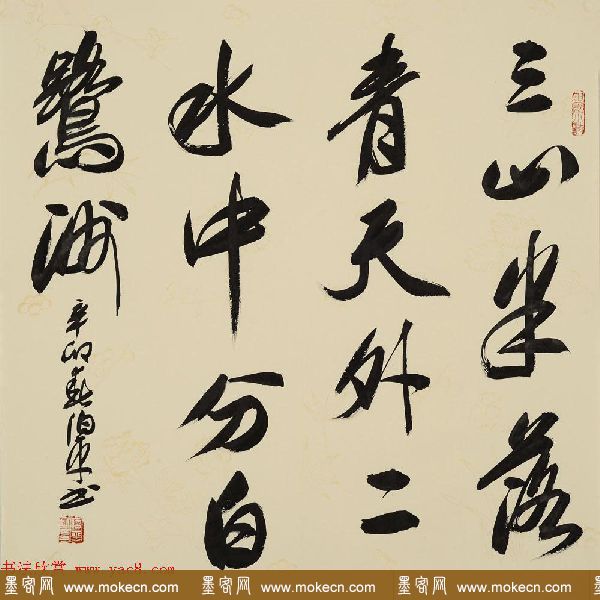 三山半落
青天外二
水中分白
鹭洲
辛卯
书法欣赏 www.yac8.com
墨客网 www.mokecn.com 墨客网 www.mokecn.com 墨客网 www.mokecn.com